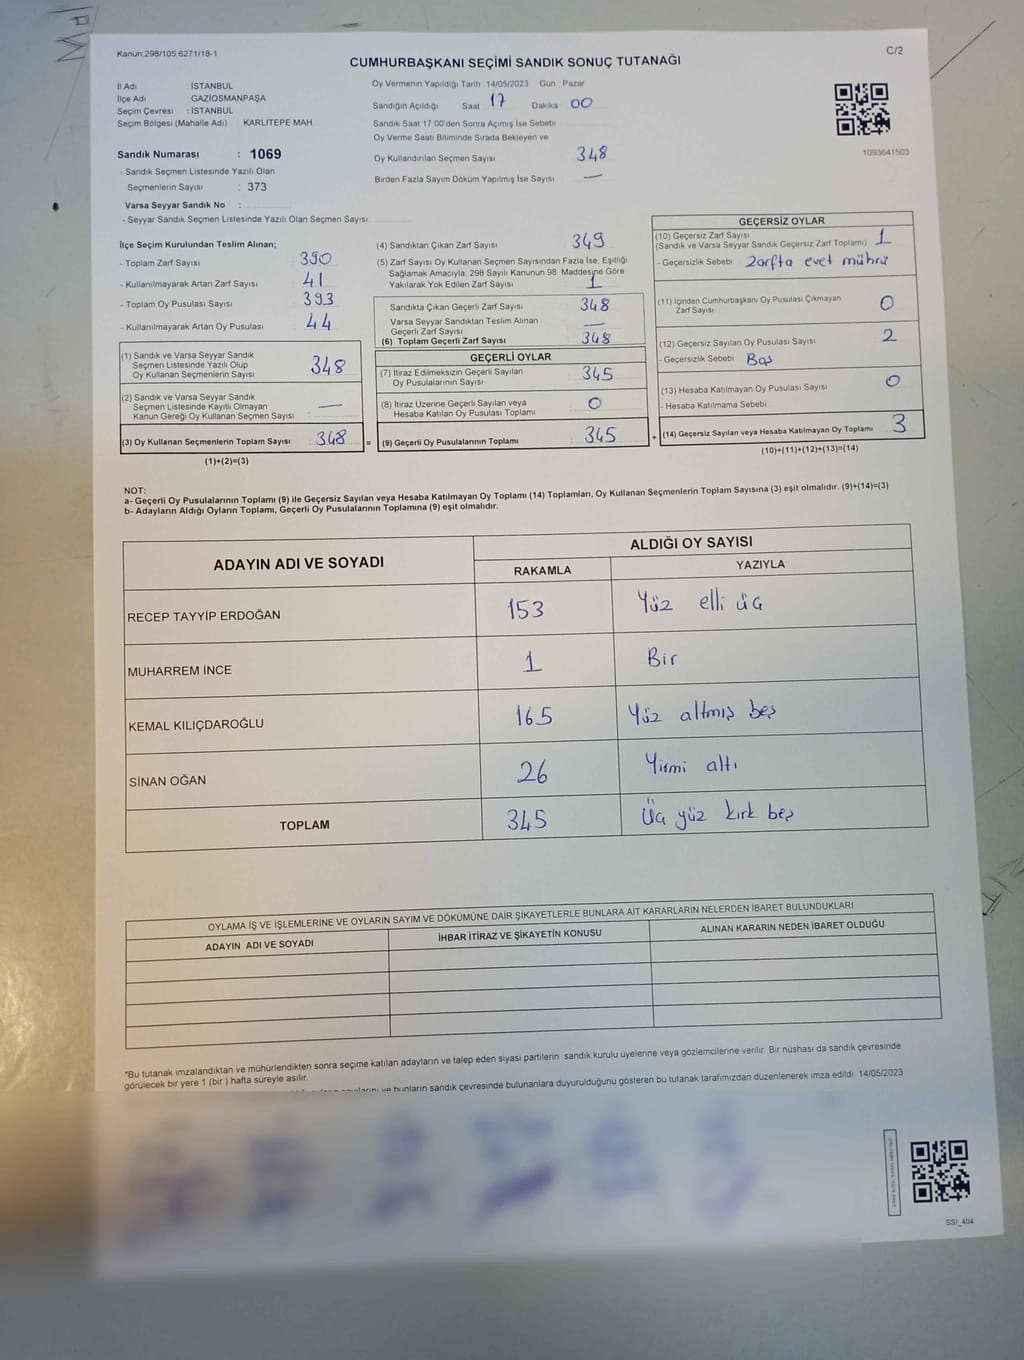 Kanun:298/105,6271/18-1
C/2
CUMHURBAŞKANI SEÇİMİ SANDIK SONUÇ TUTANAĞI
İl Adı : İSTANBUL
İlçe Adı : GAZİOSMANPAŞA
Seçim Çevresi : İSTANBUL
Seçim Bölgesi (Mahalle Adı) KARLITEPE MAH
Sandık Numarası : 1069
- Sandık Seçmen Listesinde Yazılı Olan
Seçmenlerin Sayısı : 373
Varsa Seyyar Sandık No :
- Seyyar Sandık Seçmen Listesinde Yazılı Olan Seçmen Sayısı
Oy Vermenin Yapıldığı Tarih : 14/05/2023 Gün : Pazar
Sandığın Açıldığı Saat 17 Dakika 00
Sandık Saat 17:00'den Sonra Açmış İse Sebebi
Oy Verme Saati Bitiminde Sırada Bekleyen ve
Oy Kullandırılan Seçmen Sayısı 348
Birden Fazla Sayım Döküm Yapılmış İse Sayısı —
1093641503
İlçe Seçim Kurulundan Teslim Alınan;
- Toplam Zarf Sayısı 390
- Kullanılmayarak Artan Zarf Sayısı 41
- Toplam Oy Pusulası Sayısı 393
- Kullanılmayarak Artan Oy Pusulası 44
(1) Sandık ve Varsa Seyyar Sandık
Seçmen Listesinde Yazılı Olup
Oy Kullanan Seçmenlerin Sayısı 348
(2) Sandık ve Varsa Seyyar Sandık
Seçmen Listesinde Kayıtlı Olmayan
Kanun Gereği Oy Kullanan Seçmen Sayısı —
(3) Oy Kullanan Seçmenlerin Toplam Sayısı : 348 =
(1)+(2)=(3)
(4) Sandıktan Çıkan Zarf Sayısı 349
(5) Zarf Sayısı Oy Kullanan Seçmen Sayısından Fazla İse, Eşitliği
Sağlamak Amacıyla, 298 Sayılı Kanunun 98. Maddesine Göre
Yakılarak Yok Edilen Zarf Sayısı 1
Sandıkta Çıkan Geçerli Zarf Sayısı 348
Varsa Seyyar Sandıktan Teslim Alınan
Geçerli Zarf Sayısı —
(6) Toplam Geçerli Zarf Sayısı 348
GEÇERLİ OYLAR
(7) İtiraz Edilmeksizin Geçerli Sayılan
Oy Pusulalarının Sayısı 345
(8) İtiraz Üzerine Geçerli Sayılan veya
Hesaba Katılan Oy Pusulası Toplamı 0
(9) Geçerli Oy Pusulalarının Toplamı 345 +
GEÇERSİZ OYLAR
(10) Geçersiz Zarf Sayısı
(Sandık ve Varsa Seyyar Sandık Geçersiz Zarf Toplamı) 1
- Geçersizlik Sebebi Zarfta evet mührü
(11) İçinden Cumhurbaşkanı Oy Pusulası Çıkmayan
Zarf Sayısı 0
(12) Geçersiz Sayılan Oy Pusulası Sayısı 2
- Geçersizlik Sebebi Boş
(13) Hesaba Katılmayan Oy Pusulası Sayısı 0
- Hesaba Katılmama Sebebi
(14) Geçersiz Sayılan veya Hesaba Katılmayan Oy Toplamı 3
(10)+(11)+(12)+(13)=(14)
NOT:
a- Geçerli Oy Pusulalarının Toplamı (9) ile Geçersiz Sayılan veya Hesaba Katılmayan Oy Toplamı (14) Toplamları, Oy Kullanan Seçmenlerin Toplam Sayısına (3) eşit olmalıdır. (9)+(14)=(3)
b- Adayların Aldığı Oyların Toplamı, Geçerli Oy Pusulalarının Toplamına (9) eşit olmalıdır.
ADAYIN ADI VE SOYADI
ALDIĞI OY SAYISI
RAKAMLA YAZIYLA
RECEP TAYYİP ERDOĞAN 153 Yüz elli üç
MUHARREM İNCE 1 Bir
KEMAL KILIÇDAROĞLU 165 Yüz altmış beş
SİNAN OĞAN 26 Yirmi altı
TOPLAM 345 Üç yüz kırk beş
OYLAMA İŞ VE İŞLEMLERİNE VE OYLARIN SAYIM VE DÖKÜMÜNE DAİR ŞİKAYETLERLE BUNLARA AİT KARARLARIN NELERDEN İBARET BULUNDUKLARI
ADAYIN ADI VE SOYADI İHBAR İTİRAZ VE ŞİKAYETİN KONUSU ALINAN KARARIN NEDEN İBARET OLDUĞU
*Bu tutanak imzalandıktan ve mühürlendikten sonra seçime katılan adayların ve talep eden siyasi partilerin sandık kurulu üyelerine veya gözlemcilerine verilir. Bir nüshası da sandık çevresinde
görülecek bir yere 1 (bir) hafta süreyle asılır.
ve bunların sandık çevresinde bulunanlara duyurulduğunu gösteren bu tutanak tarafımızdan düzenlenerek imza edildi. 14/05/2023
SSI_404